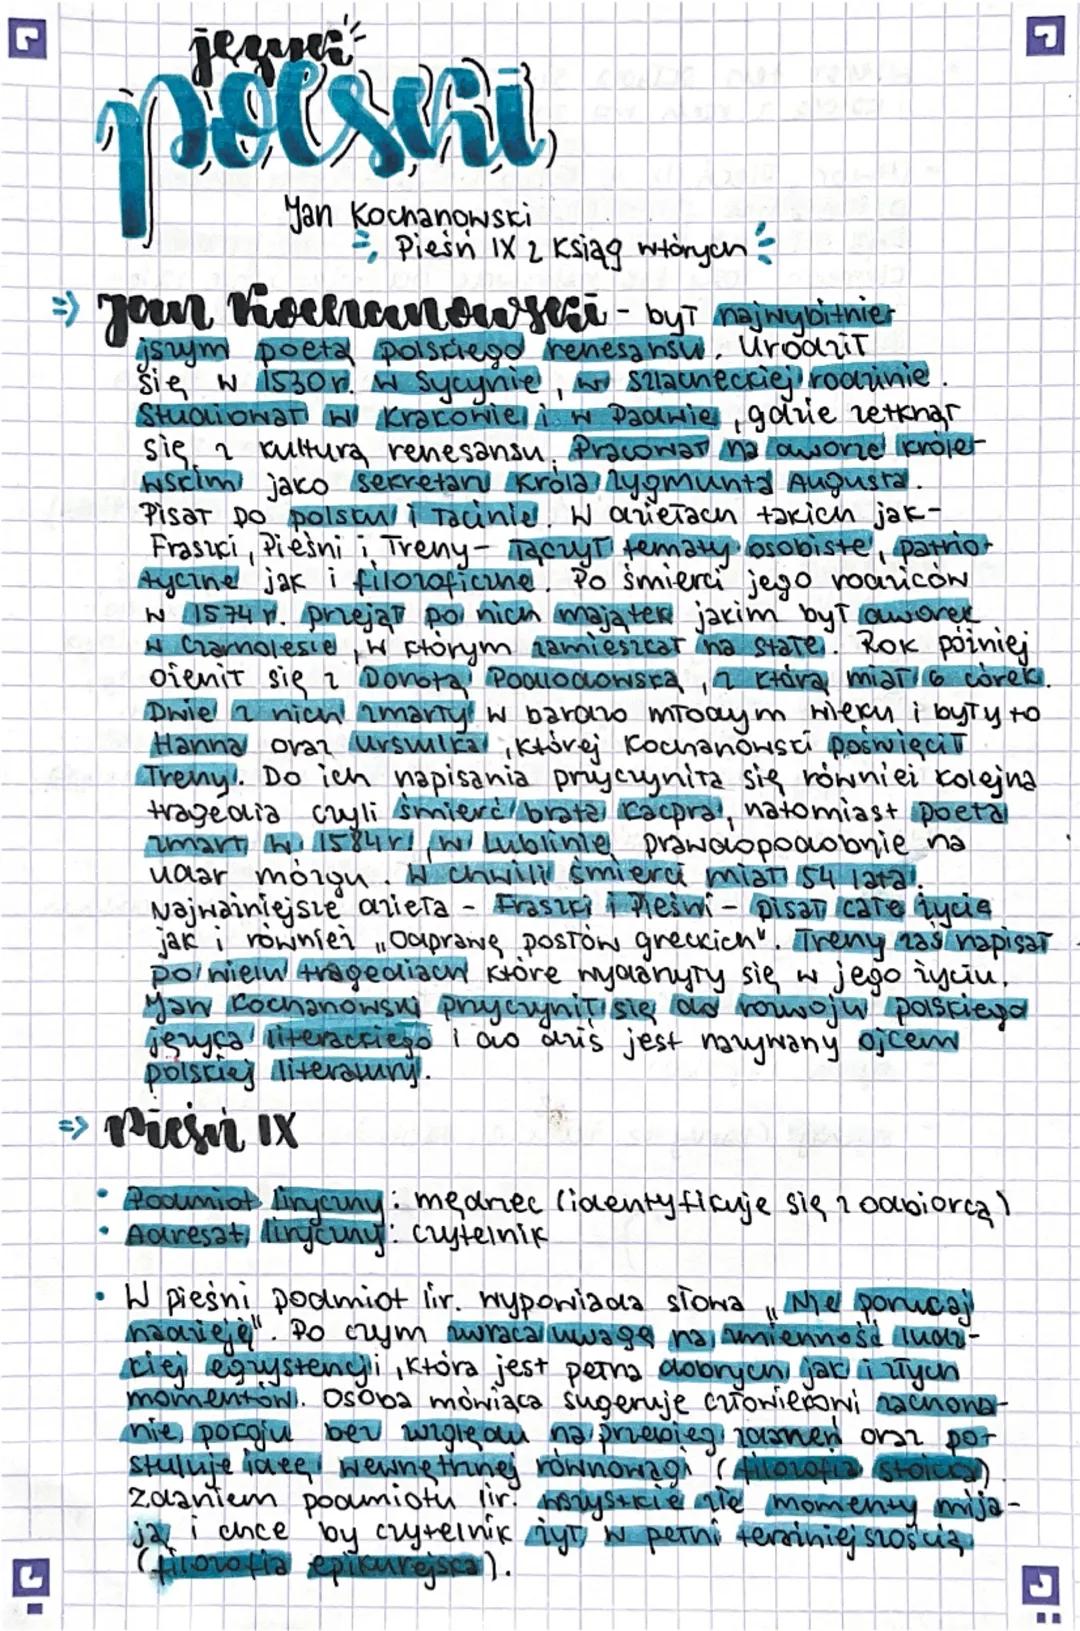 język
polski
Jan Kochanowski
Pieśń IX z Ksiąg wtórych
=> Jan Kochanowski - był najwybitnie-
jszym poetą polskiego renesansu. Urodził
się w 1530r. w Sycynie, w szlacheckiej rodzinie.
Studiował w Krakowie i w Padwie, gdzie zetknął
się z kulturą renesansu. Pracował na dworze króle-
wskim jako sekretarz króla Zygmunta Augusta.
Pisał po polsku i łacinie. W dziełach takich jak-
Fraszki, Pieśni i Treny- łączył tematy osobiste, patrio-
tyczne jak i filozoficzne. Po śmierci jego rodziców
w 1574 r. przejął po nich majątek jakim był dworek
w Czarnolesie, w którym zamieszkał na stałe. Rok później
ożenił się z Dorotą Podlodowską, z którą miał 6 córek.
Dwie z nich zmarły w bardzo młodym wieku i były to
Hanna oraz Urszulka, której Kochanowski poświęcił
Treny. Do ich napisania przyczyniła się również kolejna
tragedia czyli śmierć brata Kacpra, natomiast poeta
zmarł w 1584r. w Lublinie prawdopodobnie na
udar mózgu. W chwili śmierci miał 54 lata.
Najważniejsze dzieła - Fraszki i Pieśni - pisał całe życie
jak i również „Odprawę posłów greckich". Treny zaś napisał
po wielu tragediach które wydarzyły się w jego życiu.
Jan Kochanowski przyczynił się do rozwoju polskiego
języka literackiego i do dziś jest nazywany ojcem
polskiej literatury.
=> Pieśń IX
• Podmiot liryczny: mędrzec (identyfikuje się z odbiorcą)
• Adresat liryczny: czytelnik
• W pieśni podmiot lir. wypowiada słowa „Nie porzucaj
nadzieję". Po czym zwraca uwagę na zmienność ludz-
kiej egzystencji, która jest pełna dobrych jak i złych
momentów. Osoba mówiąca sugeruje człowiekowi zachowa-
nie pokoju bez względu na przebieg zdarzeń oraz po-
stuluje ideę wewnętrznej równowagi (filozofia stoicka)
Zdaniem podmiotu lir. wszystkie złe momenty mija-
ją i chce by czytelnik żył w pełni teraźniejszością
(filozofia epikurejska).